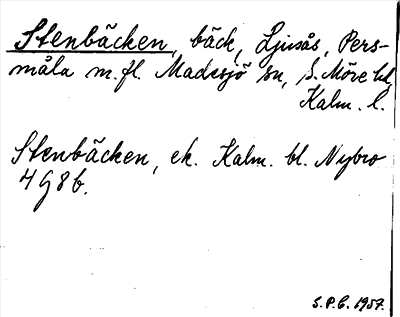 Stenbäcken, bäck, Ljusås, Pers-
måla m.fl. Madesjö sn, S. Möre hd,
Kalm. l.
Stenbäcken, ek. Kalm. bl. Nybro
4 G 8 b.
S.P.B. 1957.